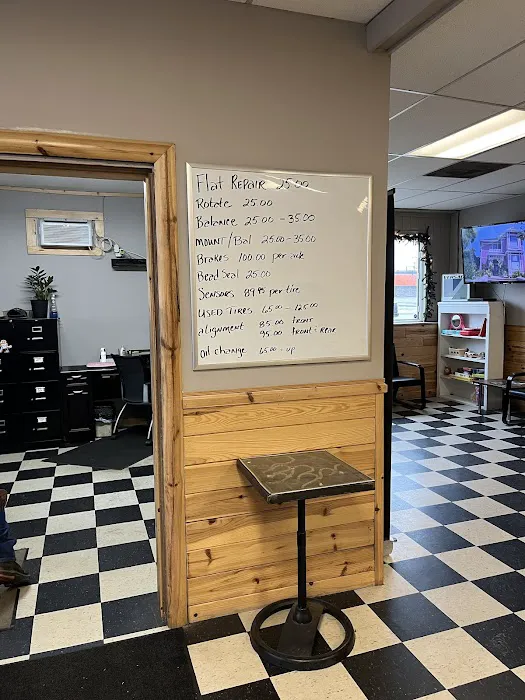 Flat Repair 25.00
Rotate 25.00
Balance 25.00 - 35.00
Mount/Bal 25.00 - 35.00
Brakes 100.00 per axle
Bead Seal 25.00
Sensors 89.95 per tire
Used Tires 65.00 - 125.00
alignment 85.00 front
95.00 front & rear
oil change 65.00 - up